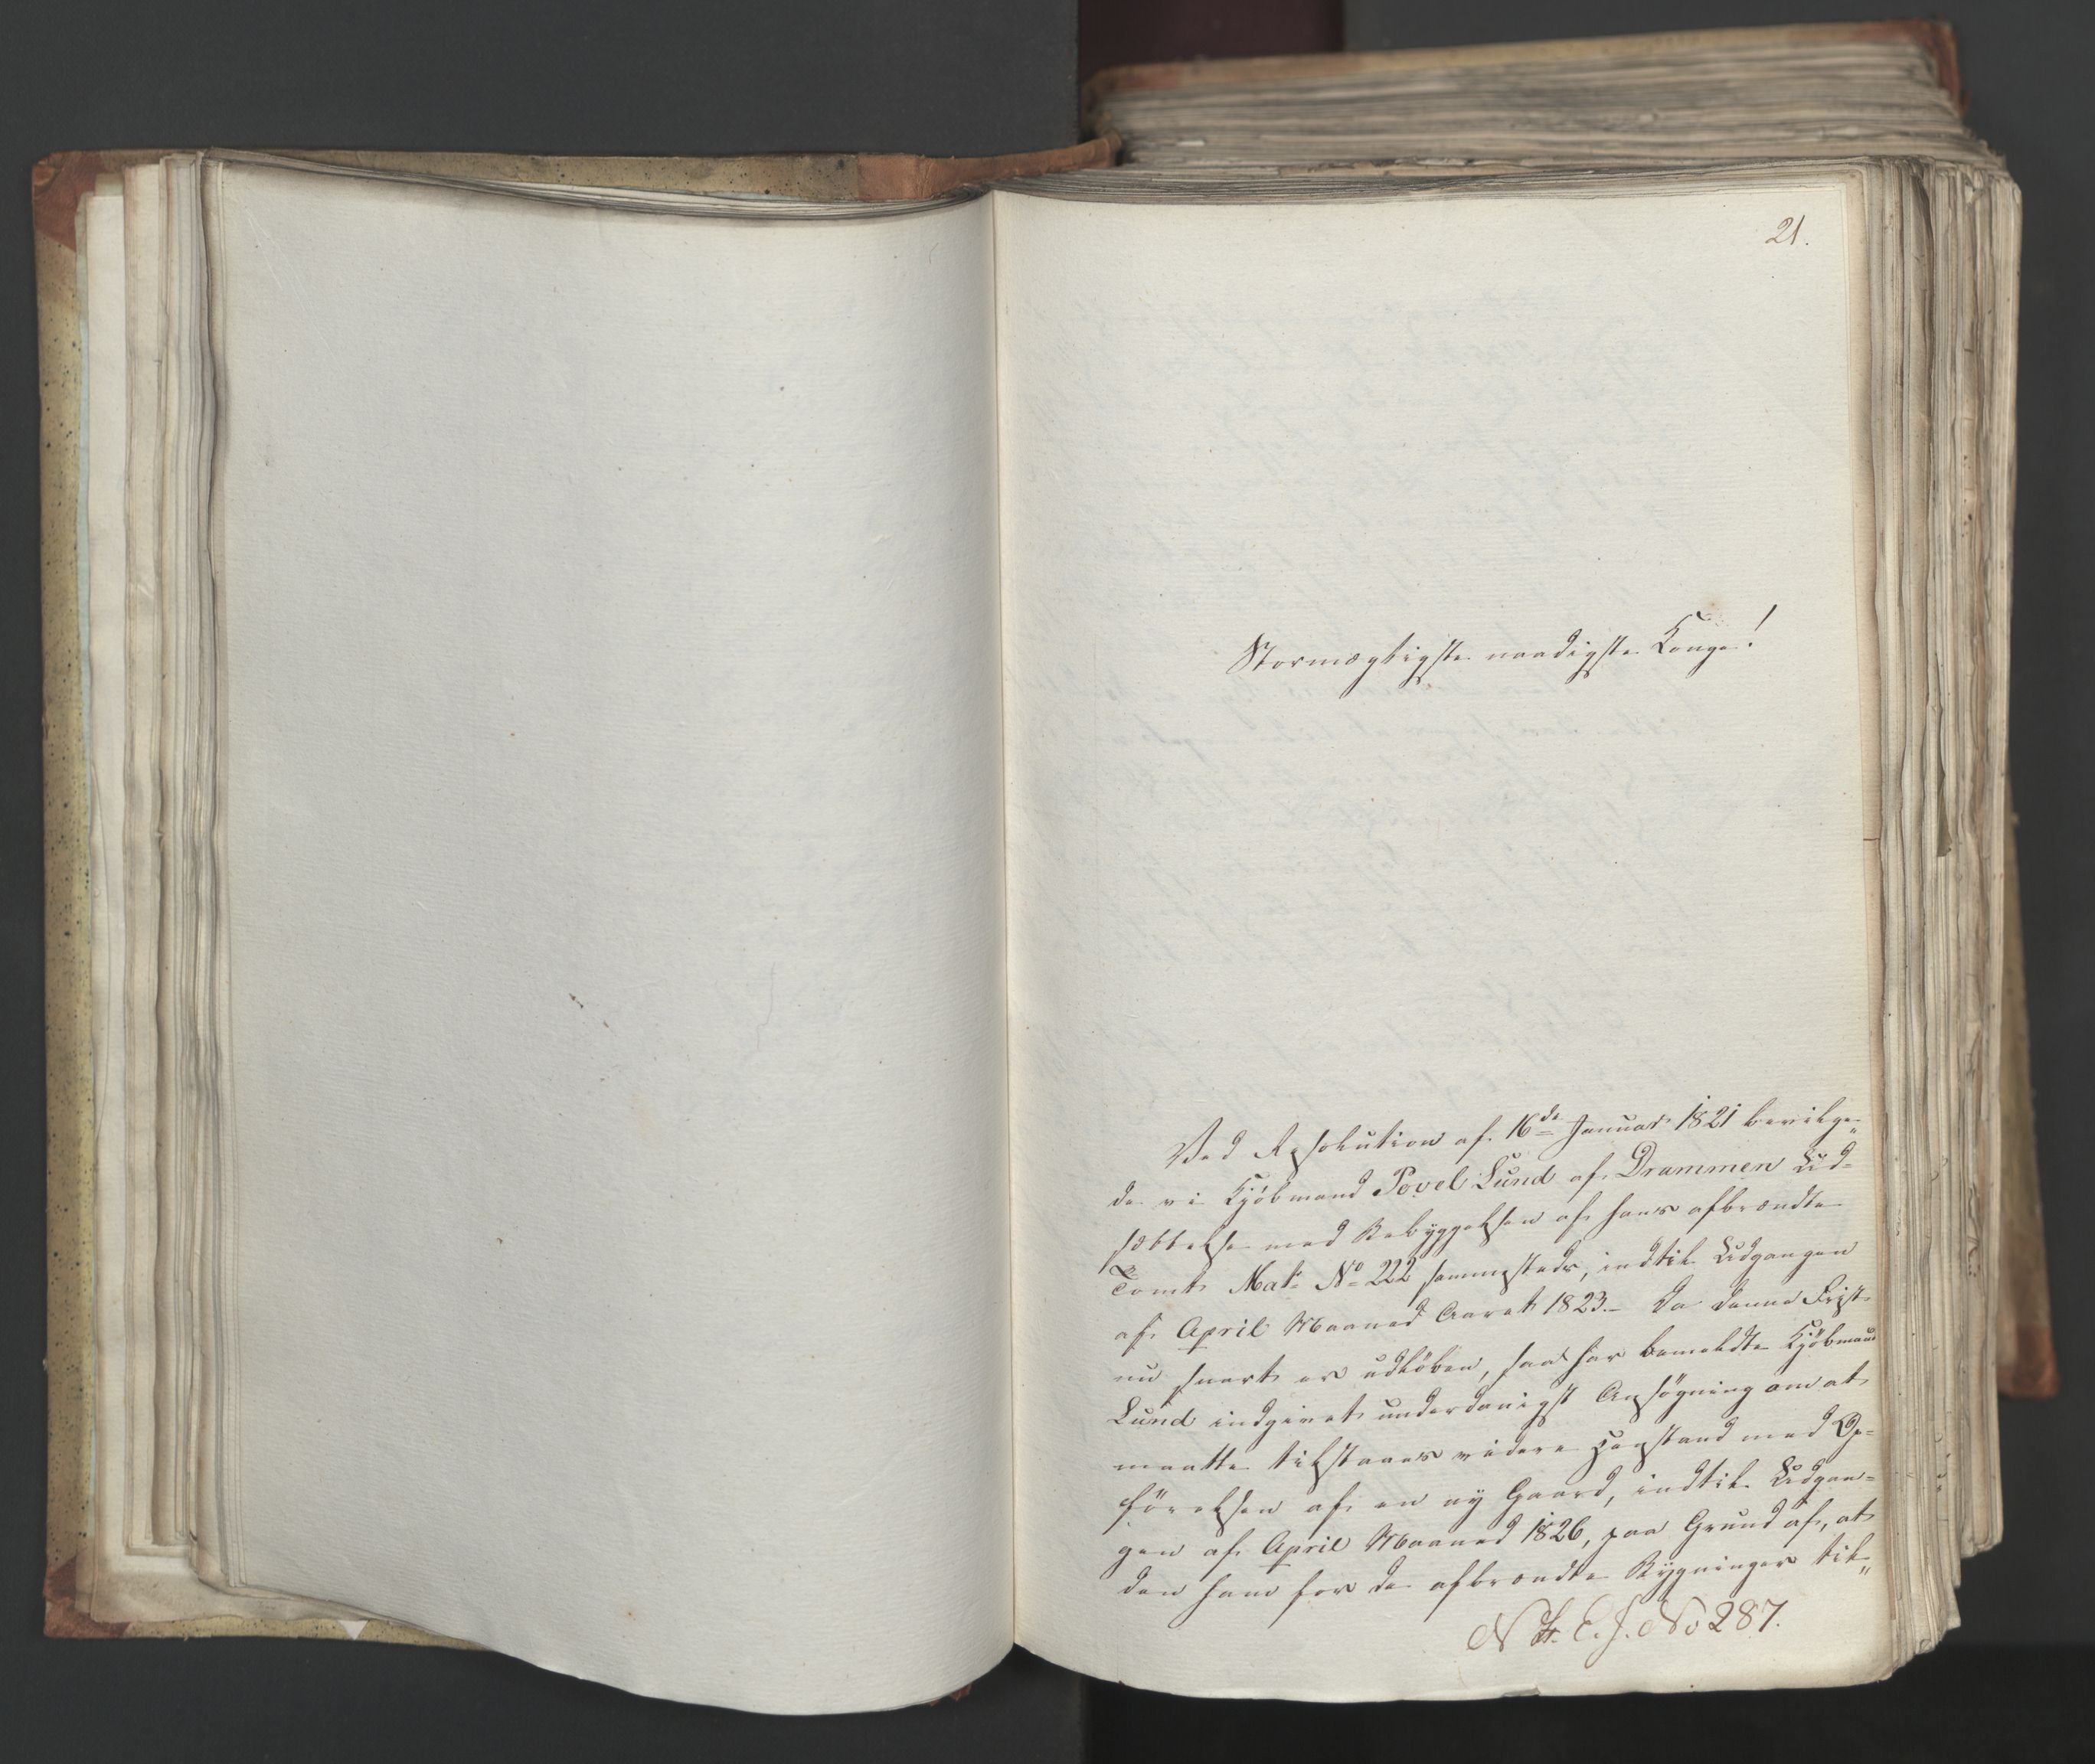 21.
Stormægtigste naadigste Konge!
Ved Resolution af 16de Januar 1821 bevilge-
de vi Kjøbmand Povel Lund af Drammen Ud-
sættelse med Bebyggelsen af hans afbrændte
Tomt Matr No 222 sammesteds, indtil Udgangen
af April Maaned Aaret 1823. Da denne Frist
nu snart er udløben, saa har bemeldte Kjøbmand
Lund indgivet underdanigst Ansøgning om at
maatte tilstaaes videre Henstand med Op-
førelsen af en ny Gaard, indtil Udgan-
gen af April Maaned 1826, paa Grund af, at
den ham for de afbrændte Bygninger til-
No 287.